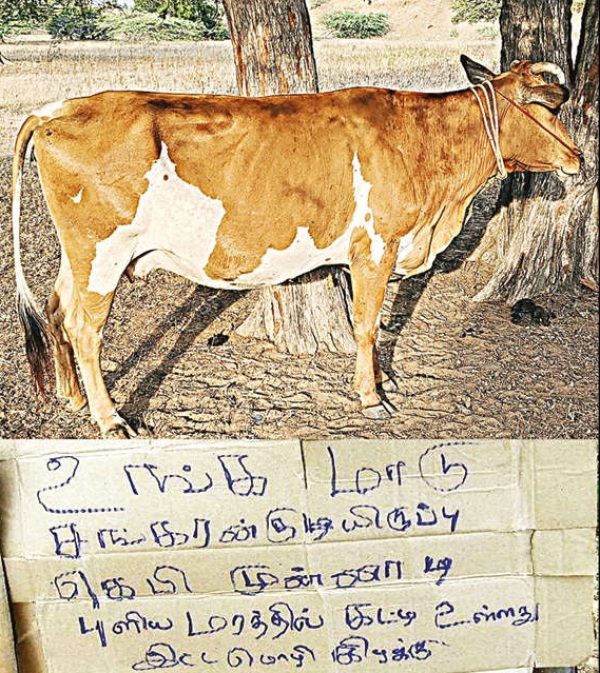 உங்க மாடு
சங்கரன்குடியிருப்பு
முன்னாடி
புளிய மரத்தில் கட்டி உள்ளது
இட்டமொழி கிழக்கு